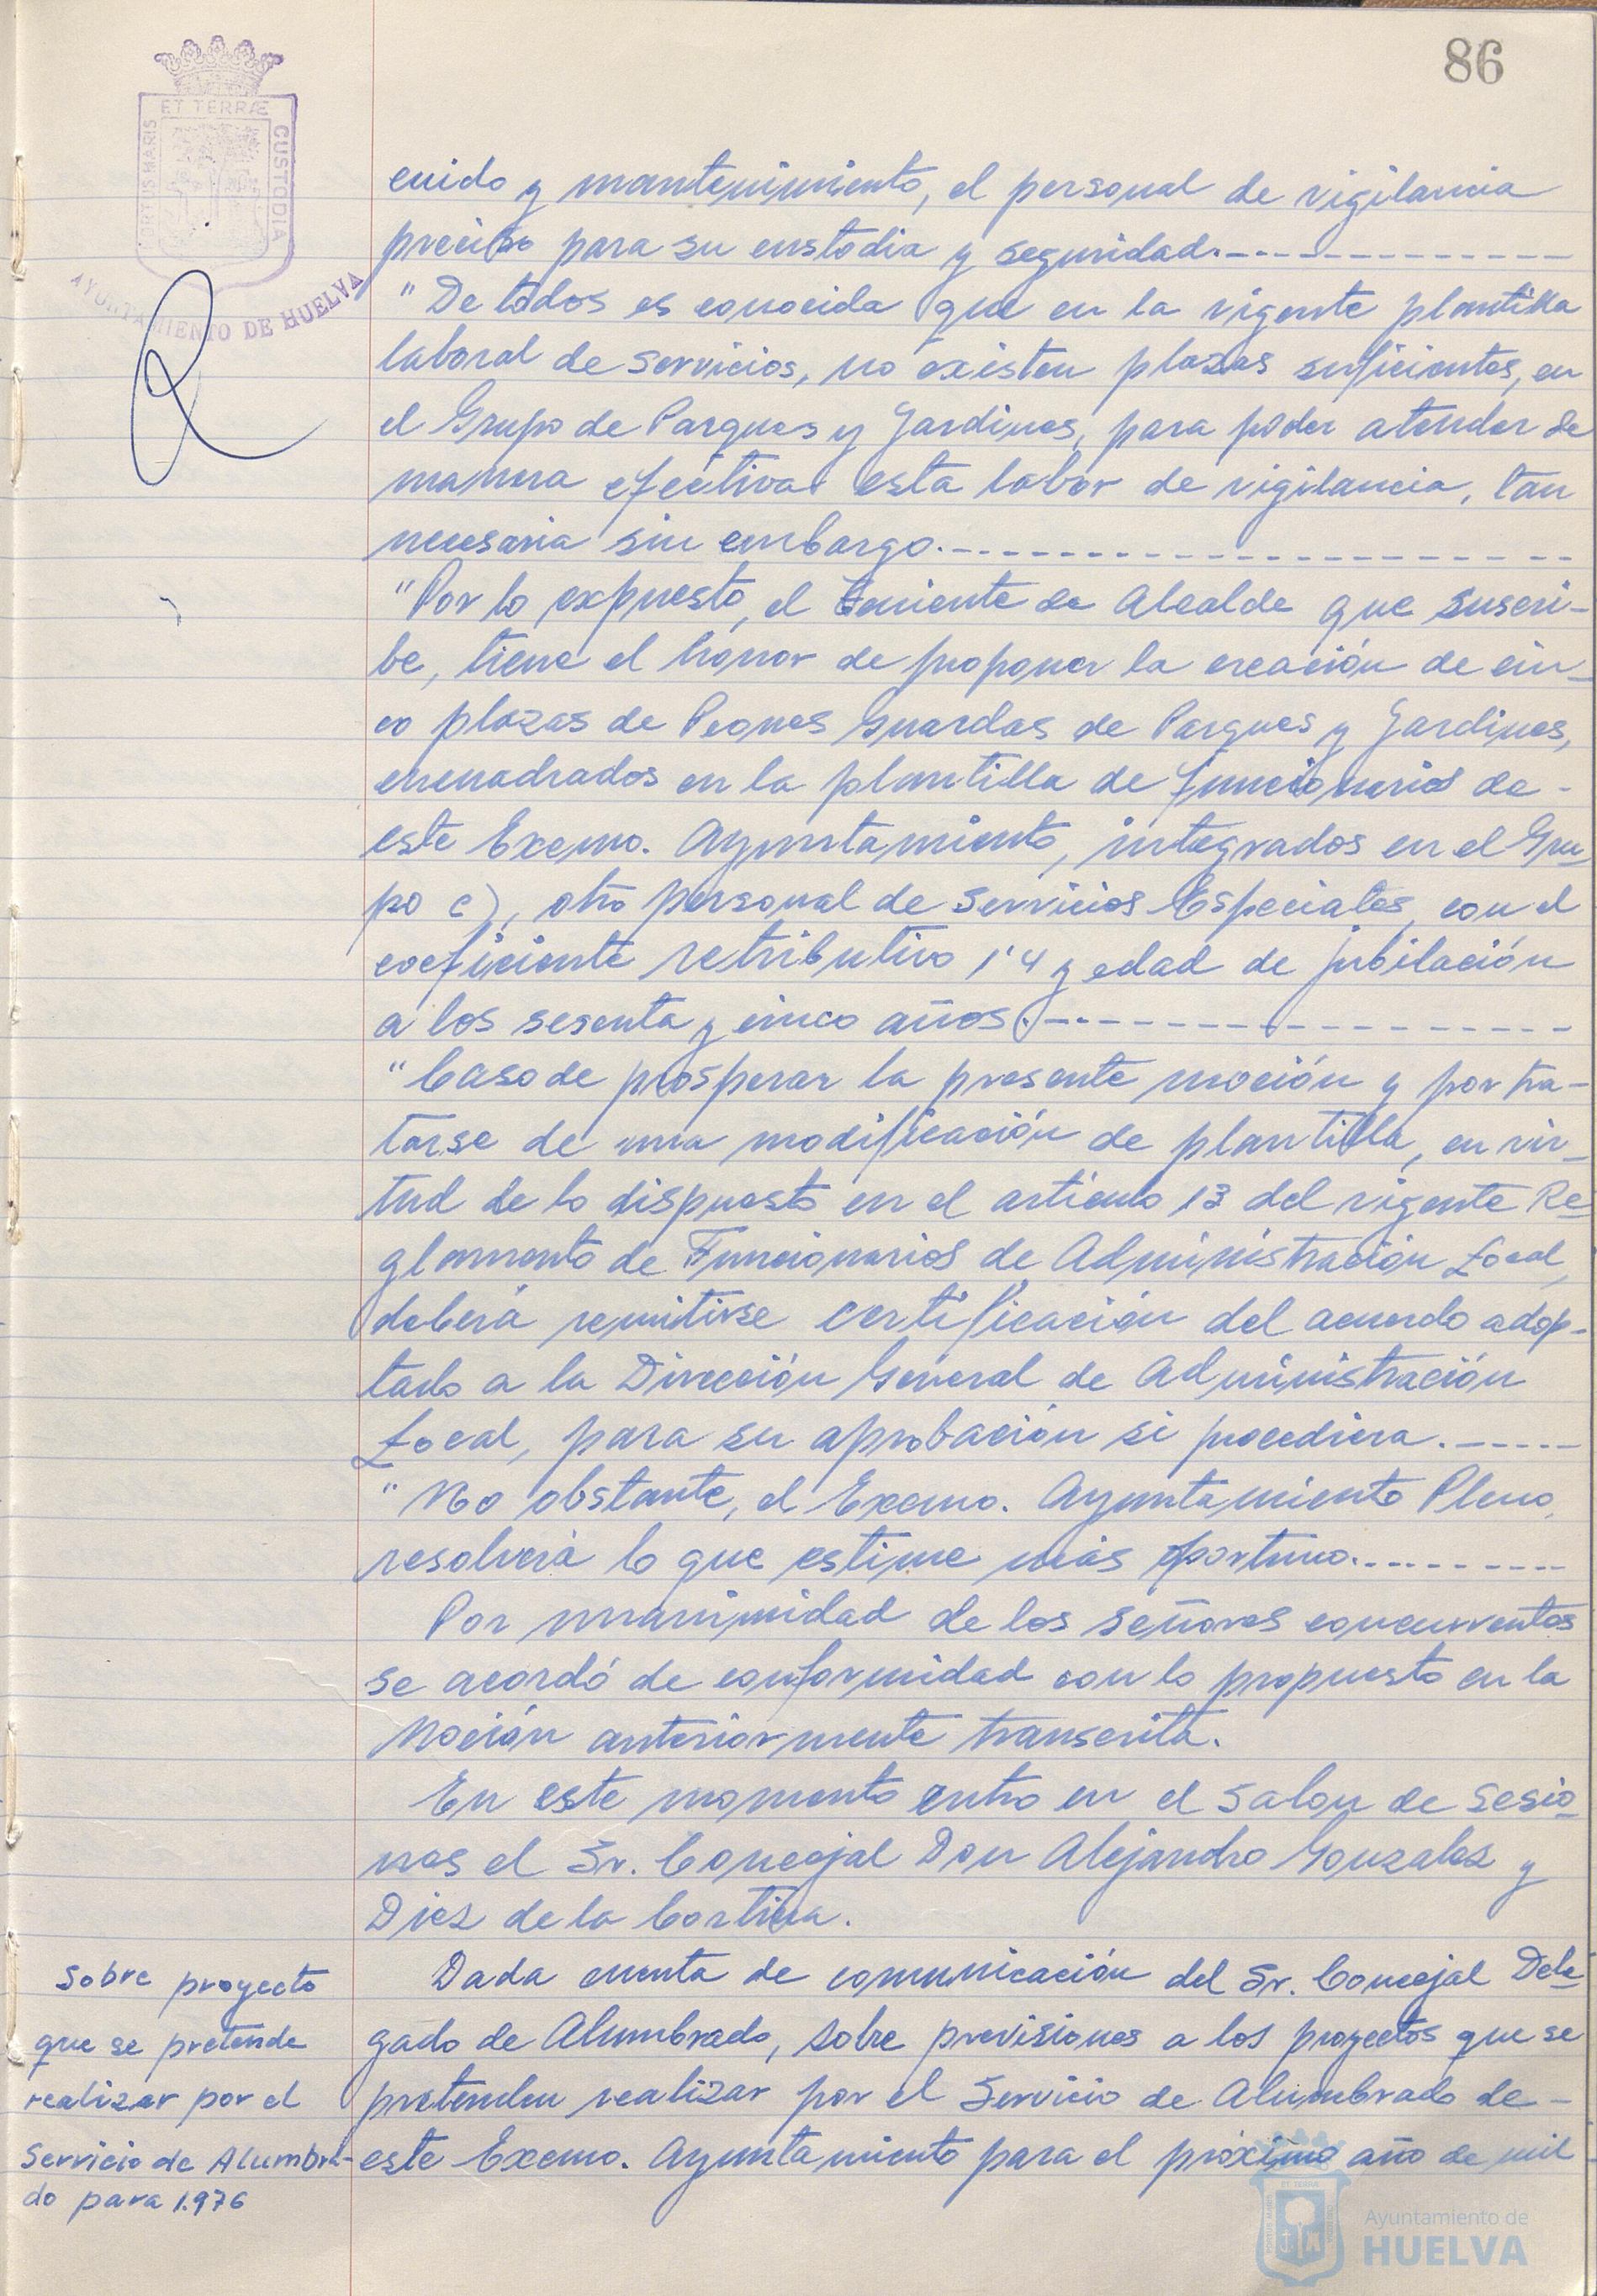 86
ET TERRÆ
PORTUS MARIS
CUSTODIA
AYUNTAMIENTO DE HUELVA
cuido y mantenimiento, el personal de vigilancia
preciso para su custodia y seguridad.
"De todos es conocida que en la vigente plantilla
laboral de servicios, no existen plazas suficientes, en
el Grupo de Parques y Jardines, para poder atender de
manera efectiva esta labor de vigilancia, tan
necesaria sin embargo.
"Por lo expuesto, el Teniente de Alcalde que suscri-
be, tiene el honor de proponer la creación de cin-
co plazas de Peones Guardas de Parques y Jardines,
encuadrados en la plantilla de funcionarios de-
este Excmo. Ayuntamiento, integrados en el Gru-
po c), otro personal de Servicios Especiales, con el
coeficiente retributivo 1'4 y edad de jubilación
a los sesenta y cinco años.
"Caso de prosperar la presente moción y por tra-
tarse de una modificación de plantilla, en vir-
tud de lo dispuesto en el articulo 13 del vigente Re-
glamento de Funcionarios de Administración Local,
deberá remitirse certificación del acuerdo adop-
tado a la Dirección General de Administración
Local, para su aprobación si procediera.
"No obstante, el Excmo. Ayuntamiento Pleno,
resolverá lo que estime más oportuno.
Por unanimidad de los señores concurrentes
se acordó de conformidad con lo propuesto en la
Moción anteriormente transcrita.
En este momento entro en el Salon de Sesio-
nes el Sr. Concejal Don Alejandro Gonzalez y
Diez de la Cortina.
Sobre proyecto
que se pretende
realizar por el
Servicio de Alumbra-
do para 1.976
Dada cuenta de comunicación del Sr. Concejal Dele-
gado de Alumbrado, sobre previsiones a los proyectos que se
pretenden realizar por el Servicio de Alumbrado de-
este Excmo. Ayuntamiento para el próximo año de mil
Ayuntamiento de
HUELVA